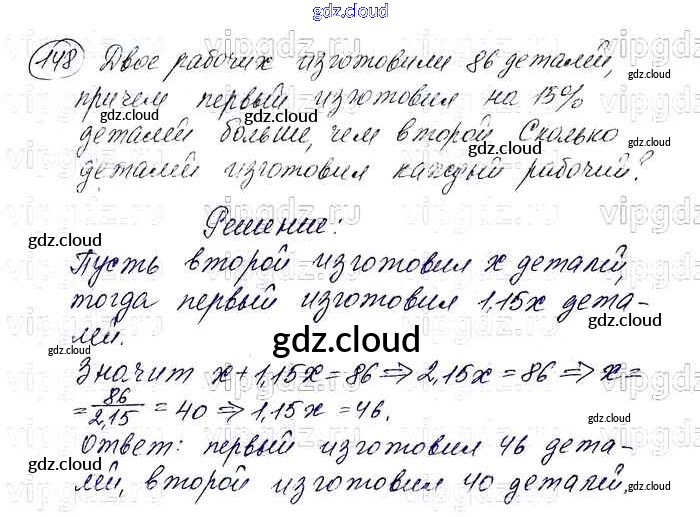 gdz.cloud
148 Двое рабочих изготовили 86 деталей,
причем первый изготовил на 15%
деталей больше, чем второй. Сколько
деталей изготовил каждый рабочий?
Решение:
Пусть второй изготовил x деталей,
тогда первый изготовил 1,15x дета-
лей.
gdz.cloud
Значит x + 1,15x = 86 ⇒ 2,15x = 86 ⇒ x =
= 86/2,15 = 40 ⇒ 1,15x = 46.
Ответ: первый изготовил 46 дета-
лей, второй изготовил 40 деталей.